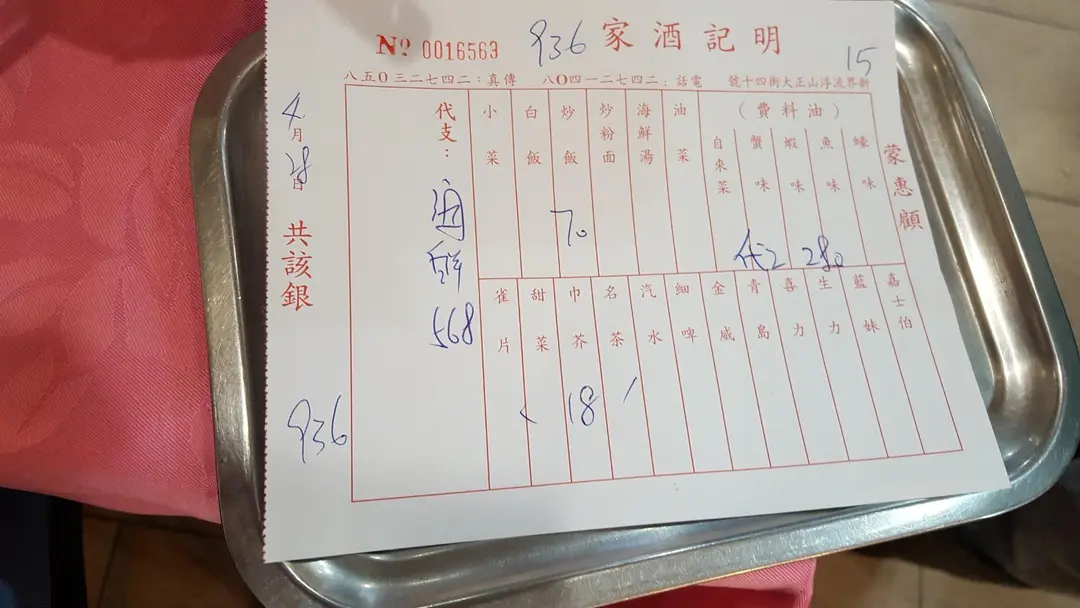 明記酒家
936
Nº 0016563
15
新界流浮山正大街四十號
電話：二四七二一四0八
傳真：二四七二三0五八
蒙惠顧
(油料費)
蠔味
魚味
蝦味
蟹味
自來菜
280
油菜
海鮮湯
炒粉面
炒飯
70
白飯
小菜
代支：
海鮮
568
嘉士伯
藍妹
生力
喜力
青島
金威
細啤
汽水
名茶
巾芥
18
甜菜
雀片
4月
日
共該銀
936